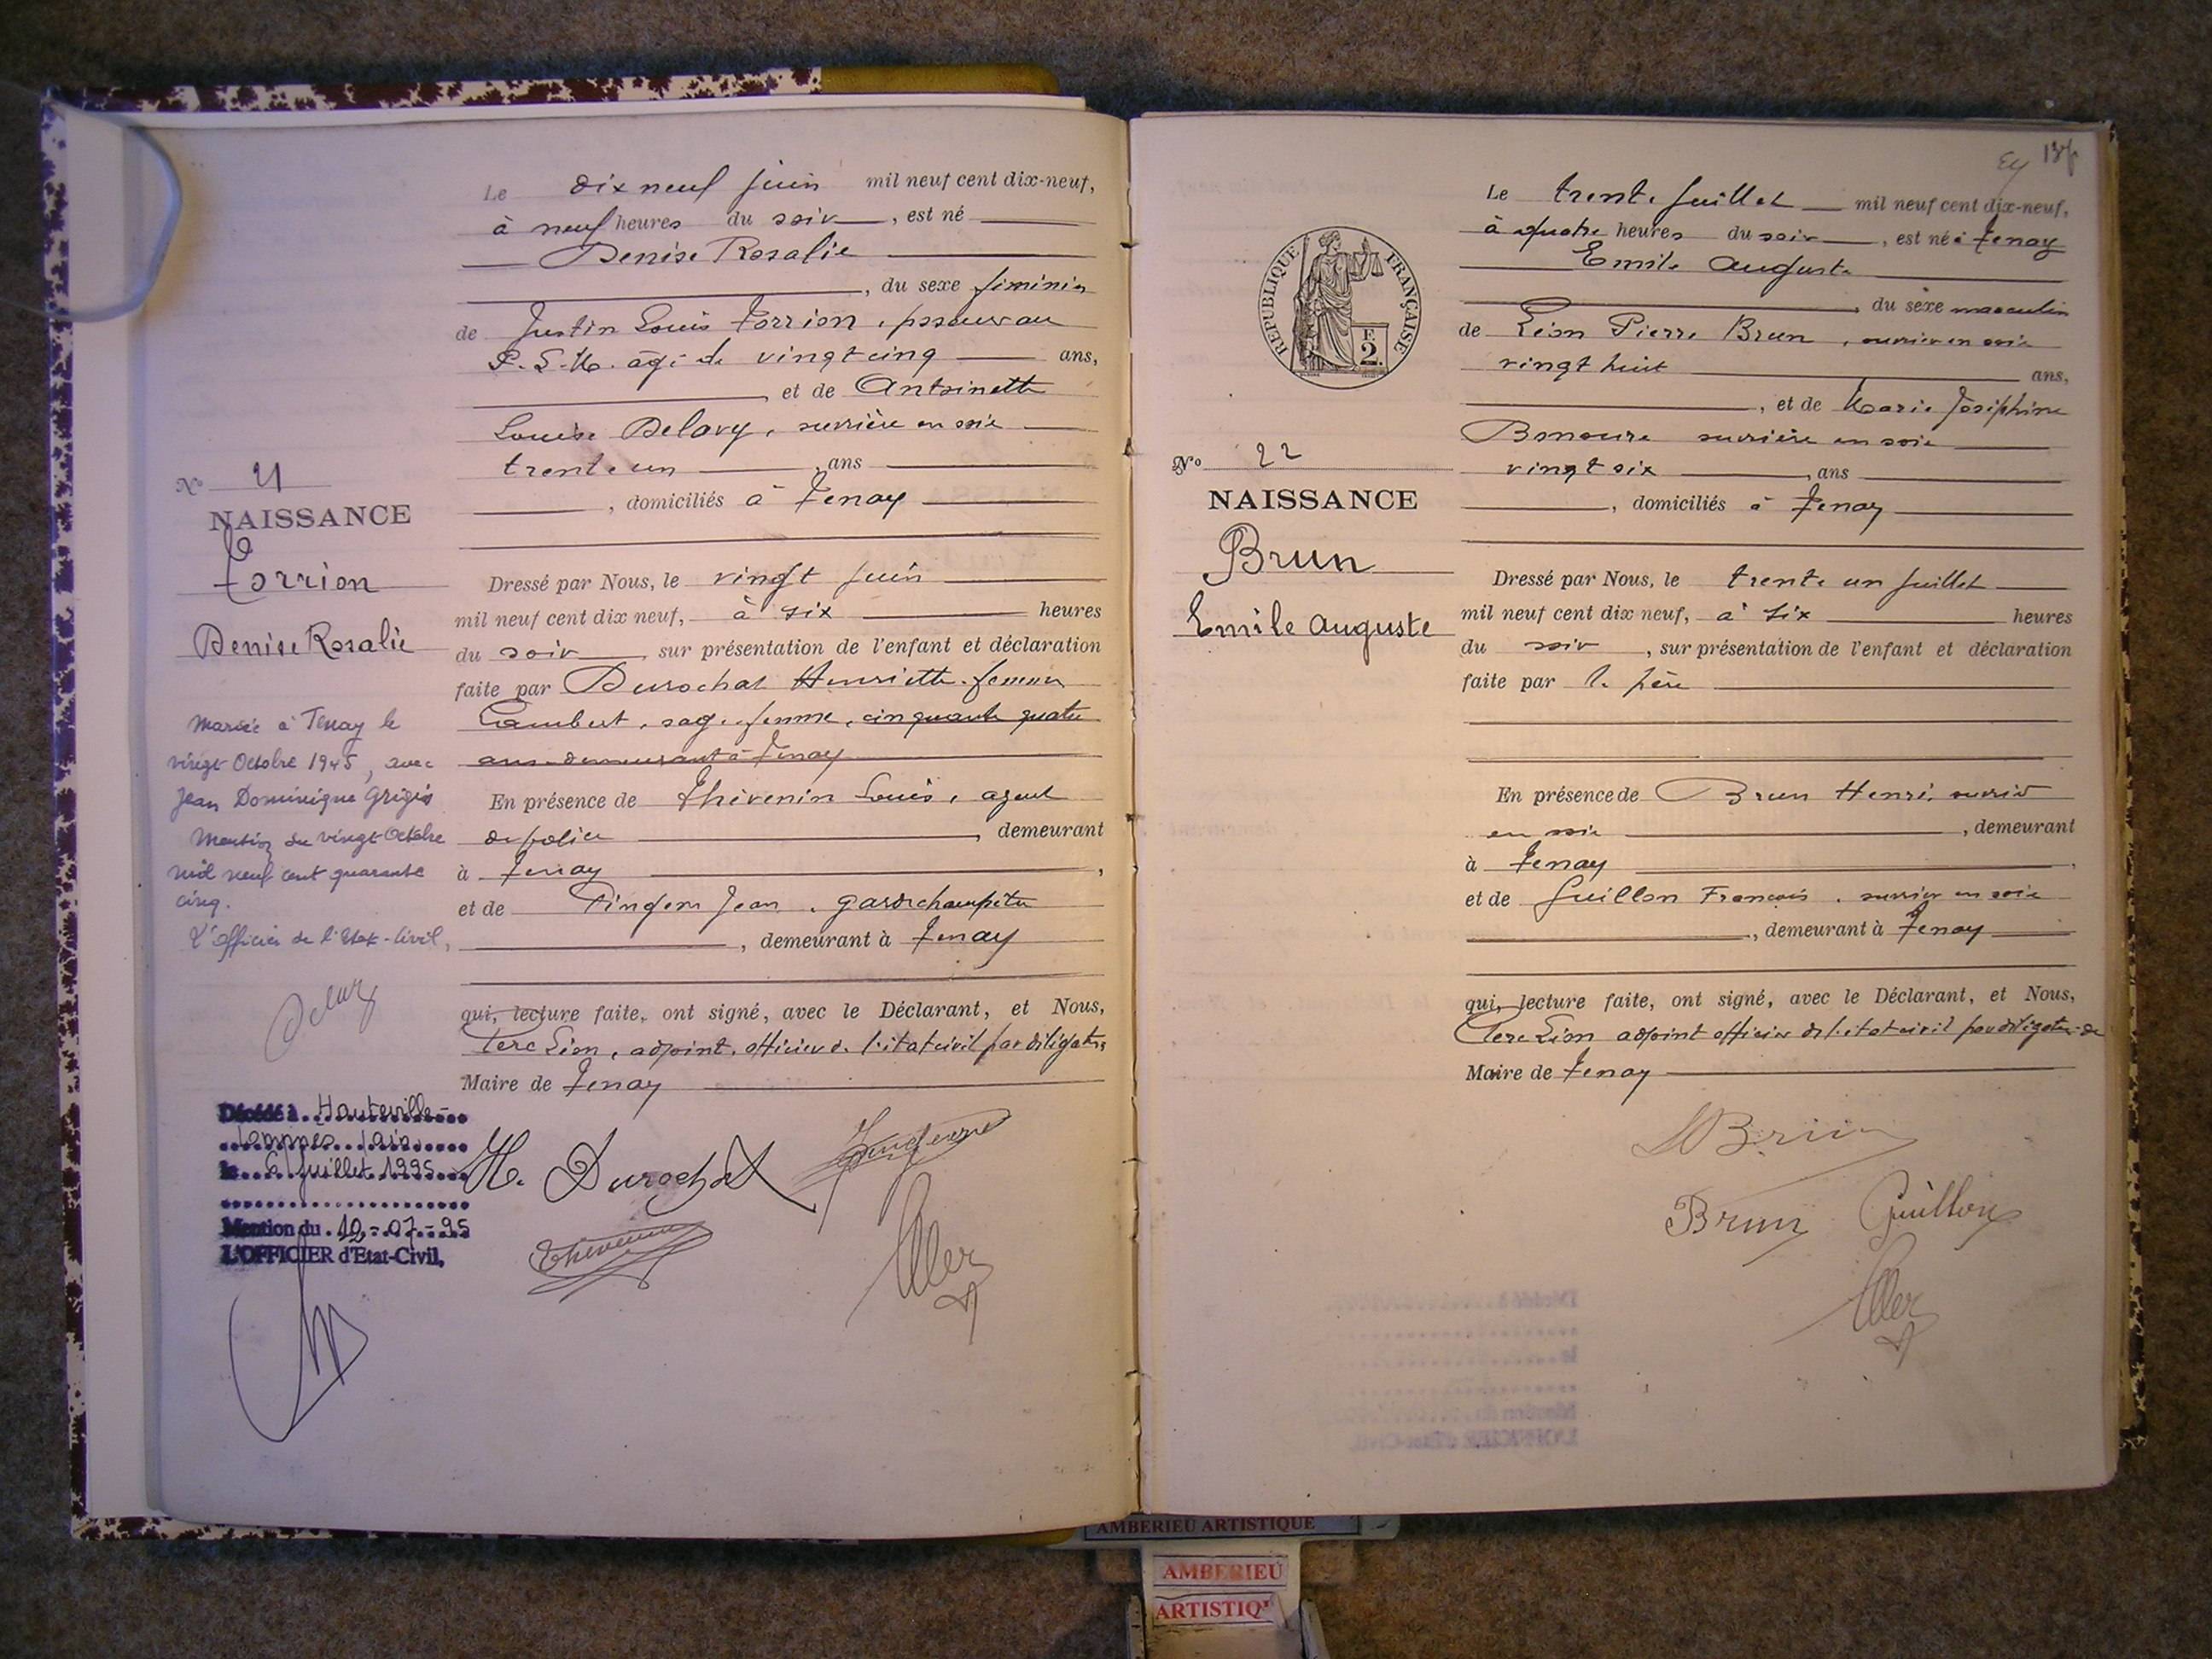 Le dix neuf juin mil neuf cent dix-neuf,
à neuf heures du soir, est né
Denise Rosalie
, du sexe féminin
de Justin Louis Torrion,
P. L. M. âgé de vingt cinq ans,
, et de Antoinette
Louise Delavy, ouvrière en soie
trente un, ans
, domiciliés à Tenay
N° 21
NAISSANCE
Torrion
Denise Rosalie
Dressé par Nous, le vingt juin
mil neuf cent dix neuf, à six heures
du soir, sur présentation de l'enfant et déclaration
faite par Durochat Henriette femme
Lambert, sage-femme, cinquante quatre
ans demeurant à Tenay
En présence de Thévenin Louis, agent
de police, demeurant
à Tenay,
et de Pingeon Jean, garde champêtre
, demeurant à Tenay
qui, lecture faite, ont signé, avec le Déclarant, et Nous,
Clerc Léon, adjoint, officier de l'état civil par délégation
Maire de Tenay
Mariée à Tenay le
vingt Octobre 1945, avec
Jean Dominique Grigis
Mention du vingt Octobre
mil neuf cent quarante
cinq.
L'officier de l'Etat-Civil,
Décédé à Hauteville-
Lompnes (Ain)
le 6 Juillet 1995
Mention du 10-07-95
L'OFFICIER d'Etat-Civil,
H. Durochat
Thévenin
137
Le trente juillet mil neuf cent dix-neuf,
à quatre heures du soir, est né à Tenay
Emile Auguste
, du sexe masculin
de Léon Pierre Brun, ouvrier en soie
vingt huit ans,
, et de Marie Joséphine
Bonoure ouvrière en soie
vingt six, ans
, domiciliés à Tenay
REPUBLIQUE FRANÇAISE
F.
2
N° 22
NAISSANCE
Brun
Emile Auguste
Dressé par Nous, le trente un juillet
mil neuf cent dix neuf, à six heures
du soir, sur présentation de l'enfant et déclaration
faite par le père
En présence de Brun Henri, ouvrier
en soie, demeurant
à Tenay,
et de Guillon François, ouvrier en soie
, demeurant à Tenay
qui, lecture faite, ont signé, avec le Déclarant, et Nous,
Clerc Léon adjoint officier de l'état civil par délégation de
Maire de Tenay
Brun
Brun Guillon
AMBERIEU ARTISTIQUE
AMBERIEU
ARTISTIQ